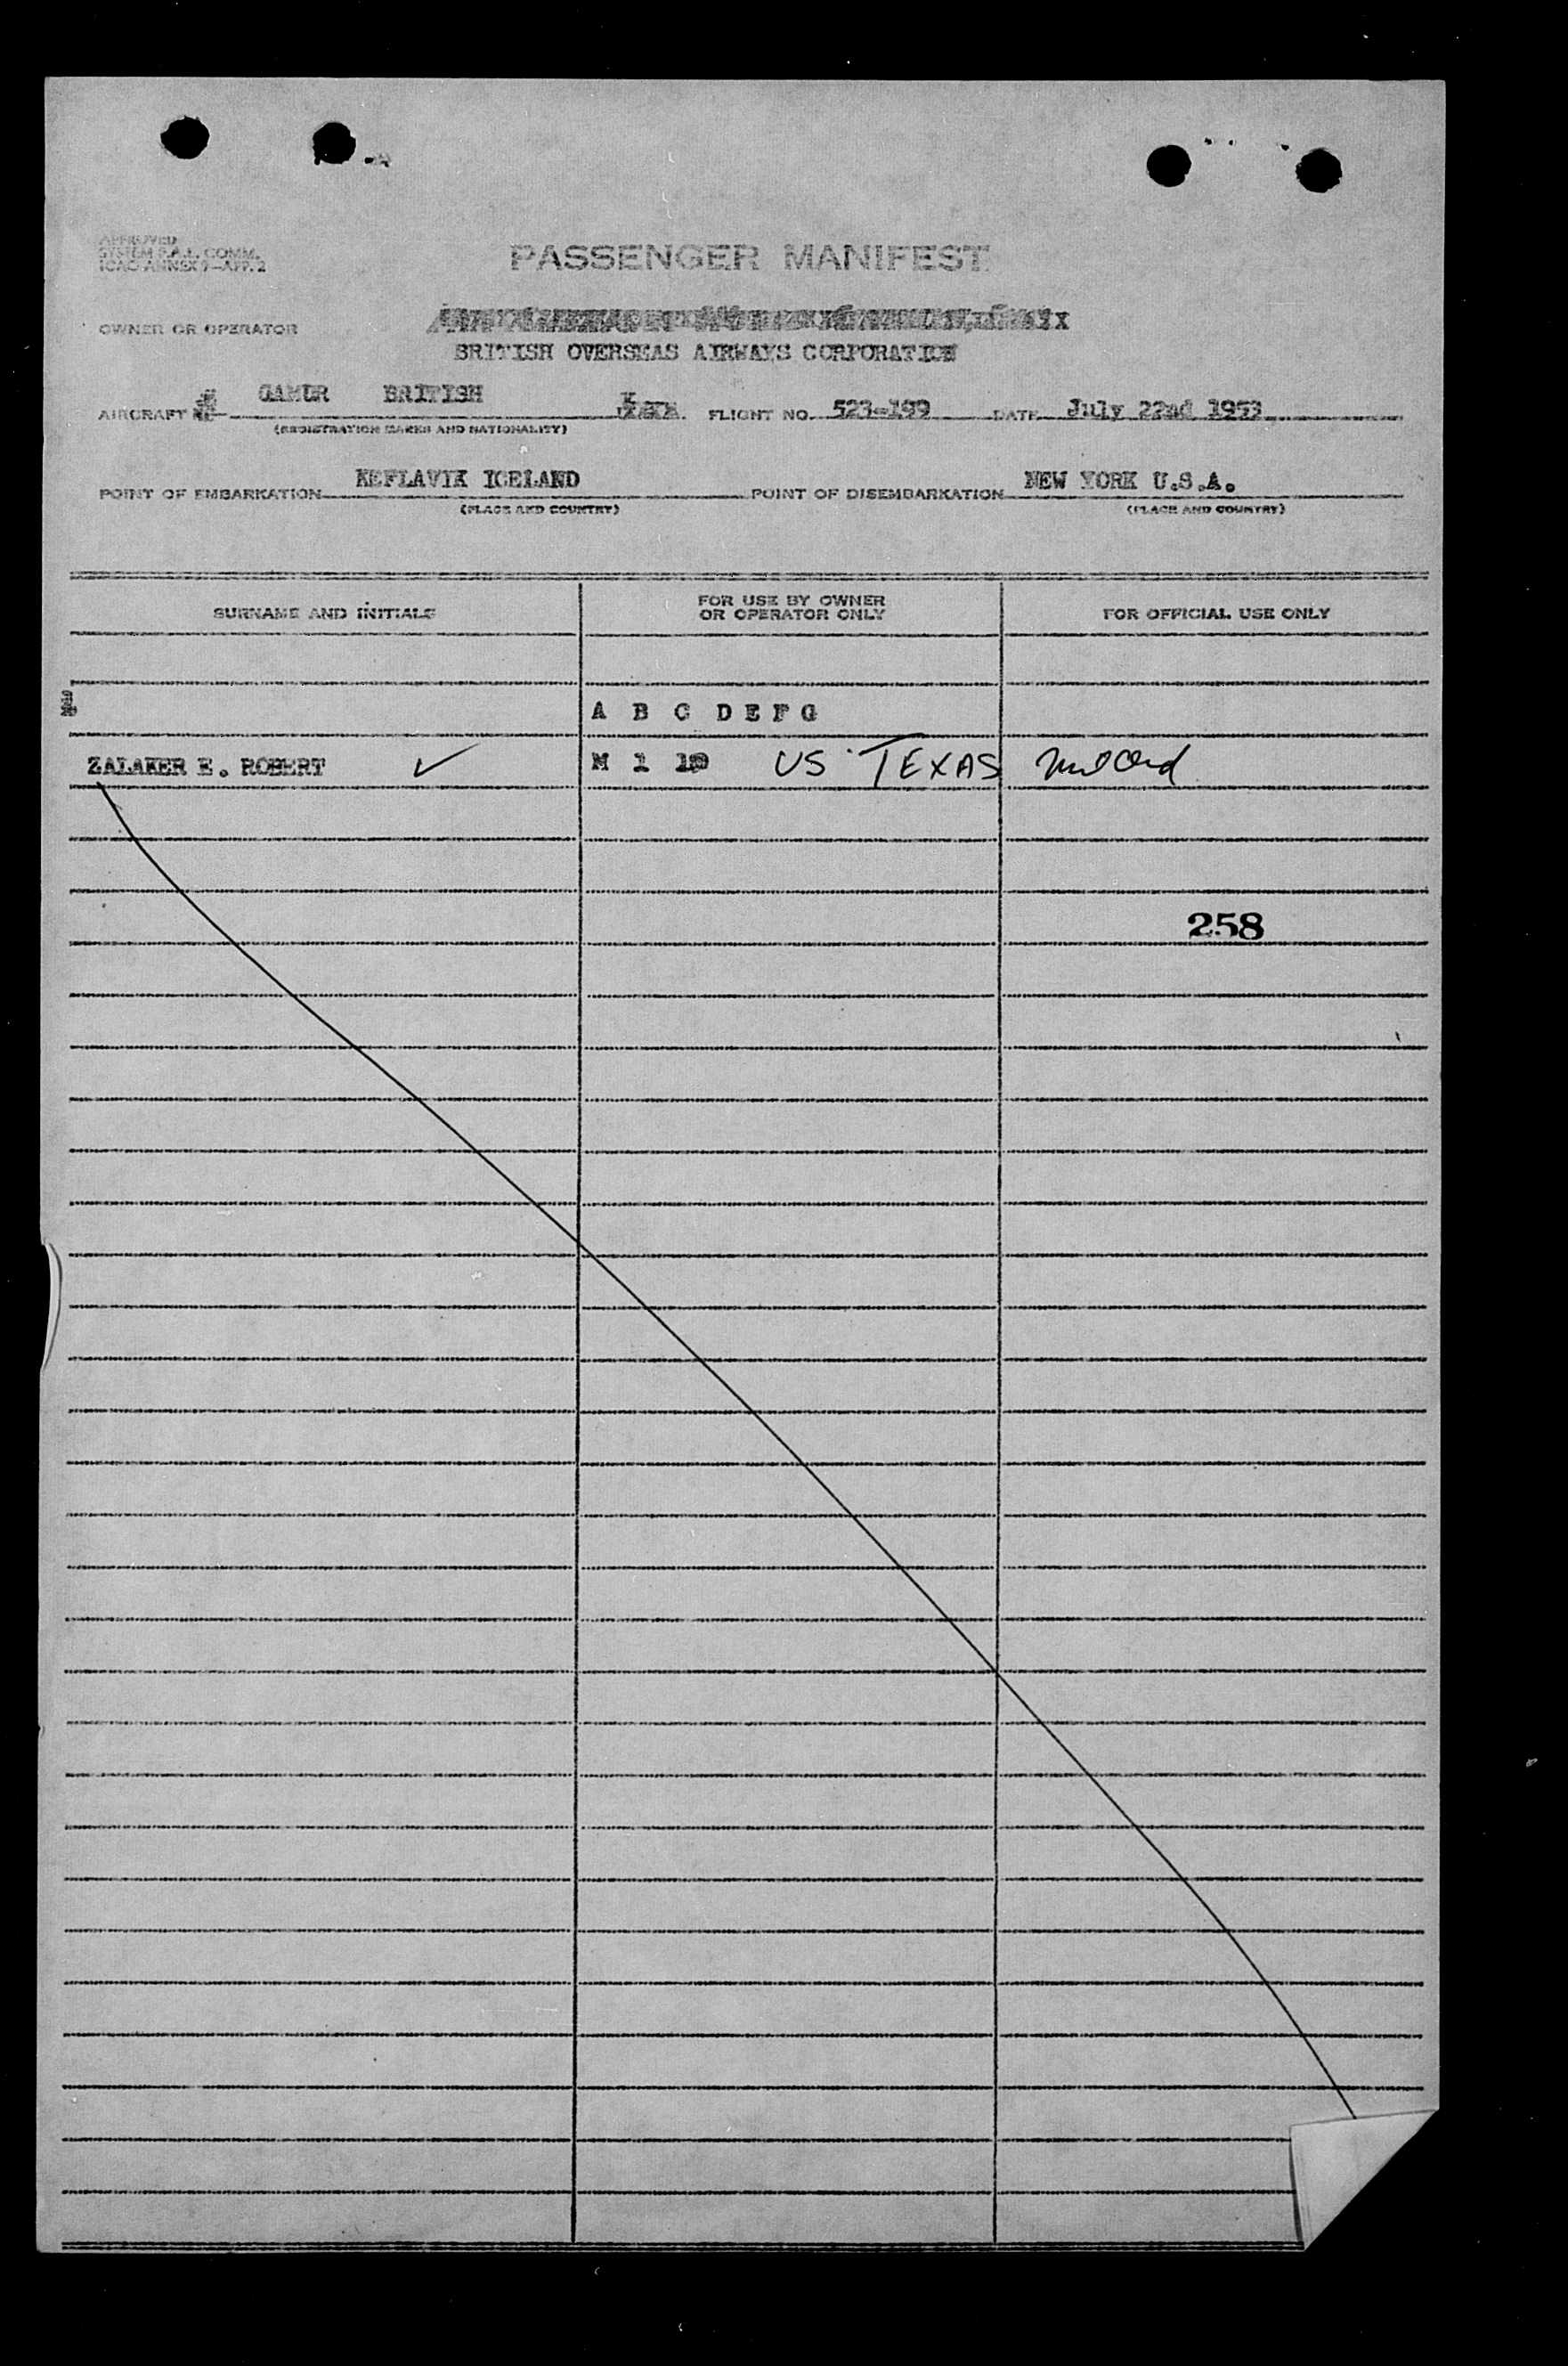 APPROVED
SYSTEM F.A.L. COMM.
ICAO ANNEX 9—APP. 2
PASSENGER MANIFEST
OWNER OR OPERATOR
BRITISH OVERSEAS AIRWAYS CORPORATION
AIRCRAFT GAMUR BRITISH FLIGHT NO. 523-199 DATE July 22nd 1953
(REGISTRATION MARKS AND NATIONALITY)
POINT OF EMBARKATION KEFLAVIK ICELAND POINT OF DISEMBARKATION NEW YORK U.S.A.
(PLACE AND COUNTRY) (PLACE AND COUNTRY)
SURNAME AND INITIALS FOR USE BY OWNER OR OPERATOR ONLY FOR OFFICIAL USE ONLY
1 A B C D E F G
ZALAKER E. ROBERT ✓ M 1 19 US TEXAS
258